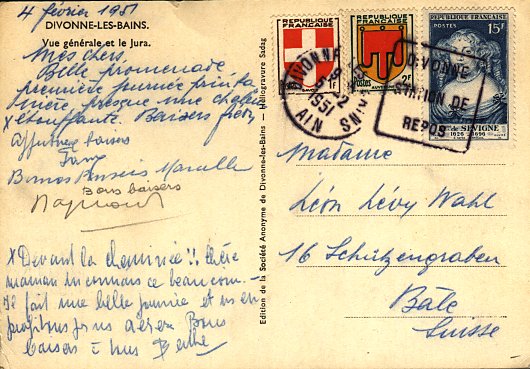 4 février 1951
DIVONNE-LES-BAINS.
Vue générale et le Jura.
Mes chers.
Belle promenade
première journée printa
nière, presque une chaleur
étouffante. Baisers
Affectueux baisers
Fany
Bonnes Pensées Marcelle
Bons baisers
Raymond
Devant la cheminée!! chère
maman
Il fait une belle journée et ns en
profitons pr ns aérer Bons
baisers à tous Berthe
Edition de la Société Anonyme de Divonne-les-Bains — Héliogravure Sadag
REPUBLIQUE FRANÇAISE
1F
REPUBLIQUE FRANÇAISE
2F
REPUBLIQUE FRANÇAISE
POSTES
15F
de SÉVIGNÉ
1626 1696
DIVONNE LES BAINS
1951
AIN
DIVONNE
STATION DE
REPOS
Madame
Léon Lévy Wahl
16 Schützengraben
Bâle
Suisse